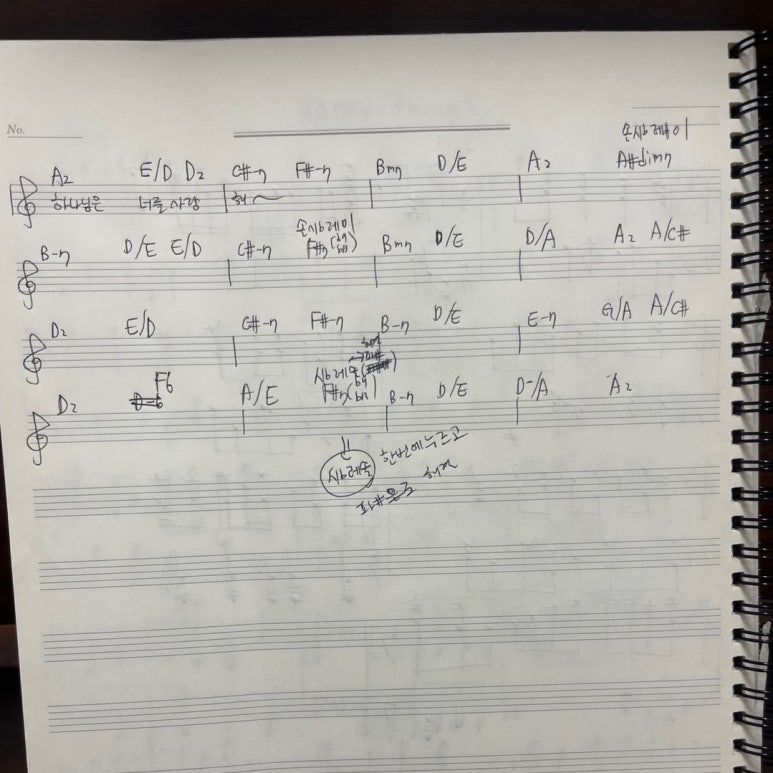 No.
솔시b레미
A2 E/D D2 C#-7 F#-7 Bm7 D/E A2 A#dim7
하나님은 너를 사랑 해~
솔시b레미
B-7 D/E E/D C#-7 F#7(b9 b13) Bm7 D/E D/A A2 A/C#
D2 E/D C#-7 F#-7 B-7 D/E E-7 G/A A/C#
시b레솔
D2 F6 A/E F#7 B-7 D/E D-/A A2
시b레솔 한번에 누르고
파#